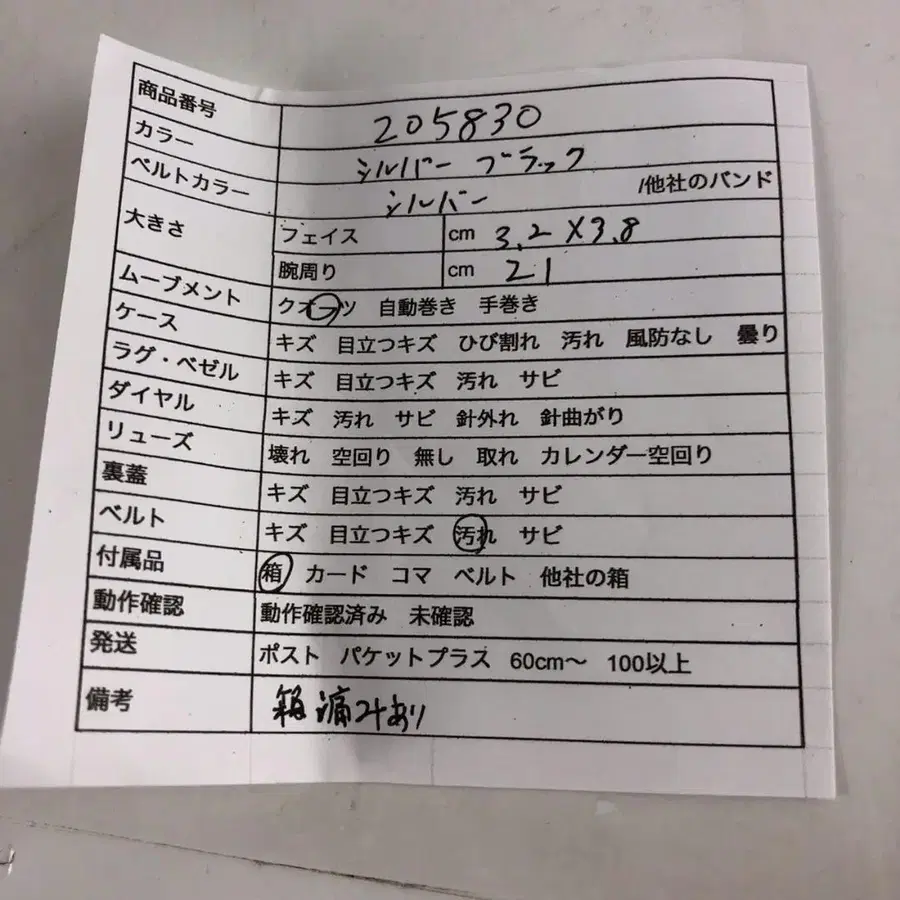 商品番号 205830
カラー シルバー ブラック
ベルトカラー シルバー /他社のバンド
大きさ フェイス cm 3.2×3.8
腕周り cm 21
ムーブメント クオーツ 自動巻き 手巻き
ケース キズ 目立つキズ ひび割れ 汚れ 風防なし 曇り
ラグ・ベゼル キズ 目立つキズ 汚れ サビ
ダイヤル キズ 汚れ サビ 針外れ 針曲がり
リューズ 壊れ 空回り 無し 取れ カレンダー空回り
裏蓋 キズ 目立つキズ 汚れ サビ
ベルト キズ 目立つキズ 汚れ サビ
付属品 箱 カード コマ ベルト 他社の箱
動作確認 動作確認済み 未確認
発送 ポスト パケットプラス 60cm～ 100以上
備考 箱痛みあり